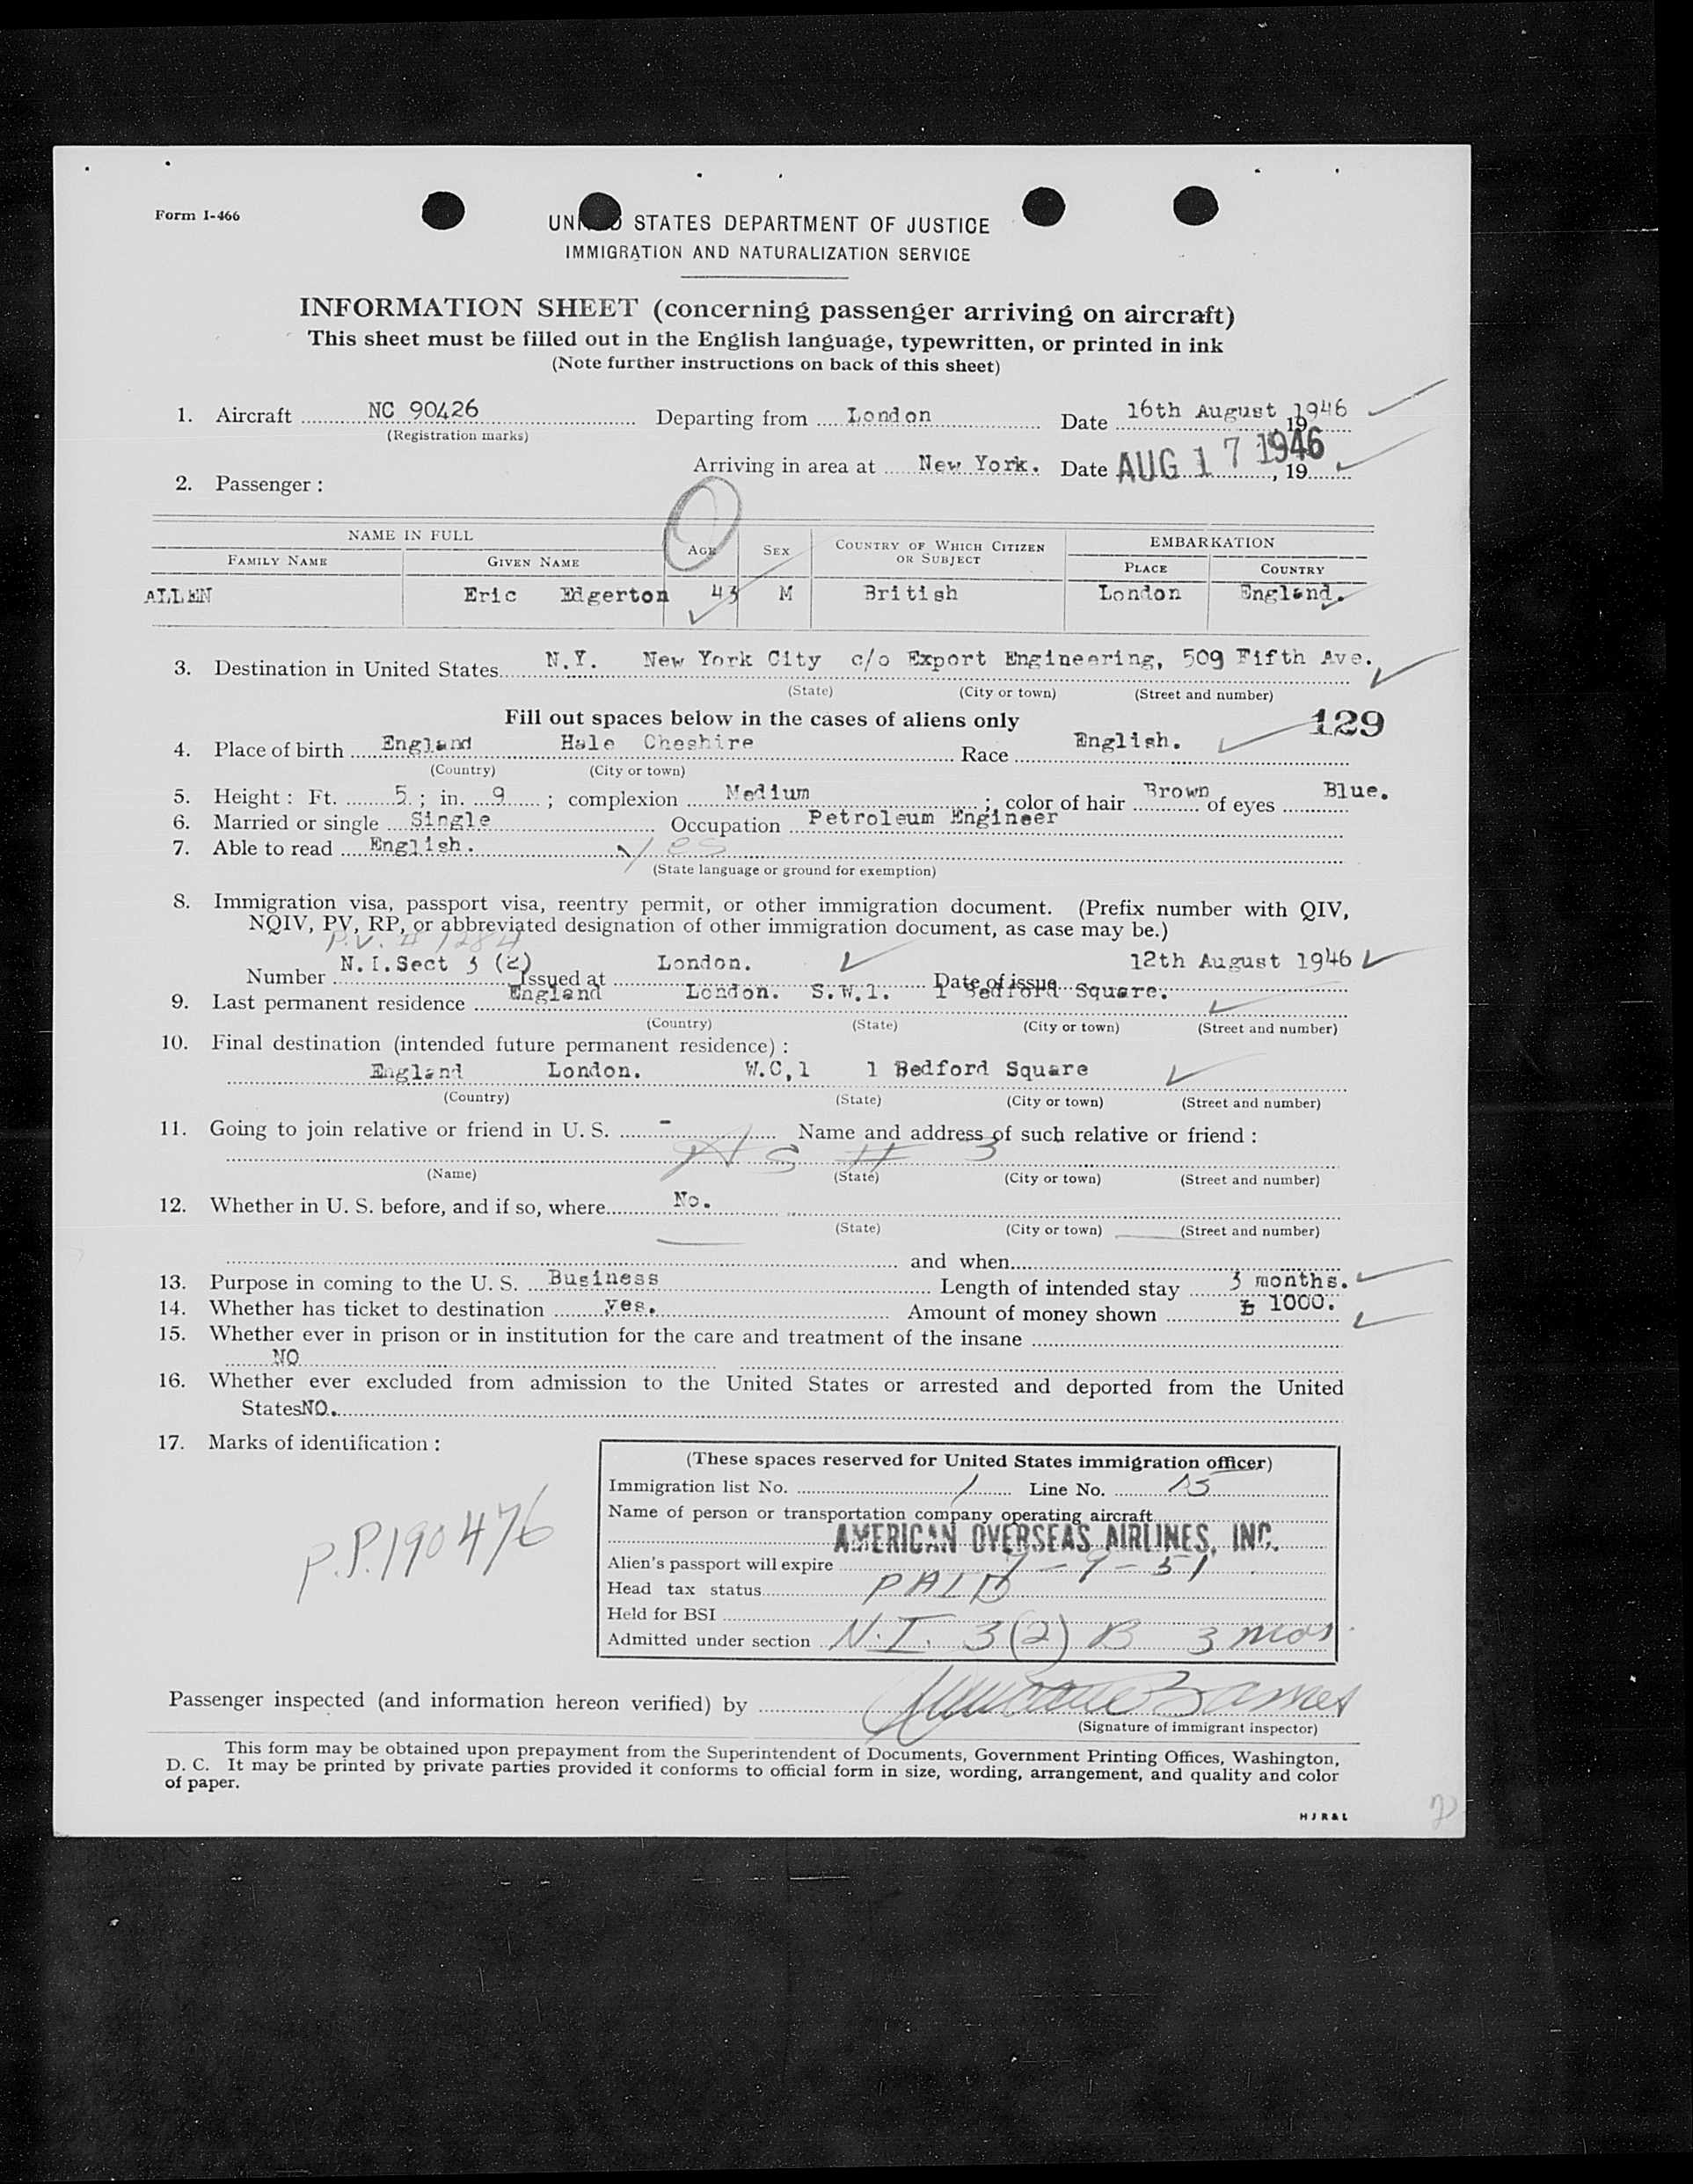 Form I-466
UNITED STATES DEPARTMENT OF JUSTICE
IMMIGRATION AND NATURALIZATION SERVICE
INFORMATION SHEET (concerning passenger arriving on aircraft)
This sheet must be filled out in the English language, typewritten, or printed in ink
(Note further instructions on back of this sheet)
1. Aircraft NC 90426 Departing from London Date 16th August 1946 19
(Registration marks)
Arriving in area at New York. Date AUG 17 1946, 19
2. Passenger :
NAME IN FULL AGE SEX COUNTRY OF WHICH CITIZEN OR SUBJECT EMBARKATION
FAMILY NAME GIVEN NAME PLACE COUNTRY
ALLEN Eric Edgerton 43 M British London England.
3. Destination in United States N.Y. New York City c/o Export Engineering, 509 Fifth Ave.
(State) (City or town) (Street and number)
Fill out spaces below in the cases of aliens only 129
4. Place of birth England Hale Cheshire Race English.
(Country) (City or town)
5. Height : Ft. 5 ; in. 9 ; complexion Medium ; color of hair Brown of eyes Blue.
6. Married or single Single Occupation Petroleum Engineer
7. Able to read English. Yes
(State language or ground for exemption)
8. Immigration visa, passport visa, reentry permit, or other immigration document. (Prefix number with QIV,
NQIV, PV, RP, or abbreviated designation of other immigration document, as case may be.)
P.V. # 1284
Number N.I.Sect 3 (2) Issued at London. Date of issue 12th August 1946
9. Last permanent residence England London. S.W.1. 1 Bedford Square.
(Country) (State) (City or town) (Street and number)
10. Final destination (intended future permanent residence) :
England London. W.C,1 1 Bedford Square
(Country) (State) (City or town) (Street and number)
11. Going to join relative or friend in U. S. - Name and address of such relative or friend :
AS # 3
(Name) (State) (City or town) (Street and number)
12. Whether in U. S. before, and if so, where No.
(State) (City or town) (Street and number)
and when
13. Purpose in coming to the U. S. Business Length of intended stay 3 months.
14. Whether has ticket to destination yes. Amount of money shown £ 1000.
15. Whether ever in prison or in institution for the care and treatment of the insane
NO
16. Whether ever excluded from admission to the United States or arrested and deported from the United
States NO.
17. Marks of identification :
P.P.190476
(These spaces reserved for United States immigration officer)
Immigration list No. 1 Line No. 15
Name of person or transportation company operating aircraft
AMERICAN OVERSEAS AIRLINES, INC.
Alien's passport will expire 7-9-51
Head tax status PAID
Held for BSI
Admitted under section N.I. 3(2) B 3 mos.
Passenger inspected (and information hereon verified) by
(Signature of immigrant inspector)
This form may be obtained upon prepayment from the Superintendent of Documents, Government Printing Offices, Washington,
D. C. It may be printed by private parties provided it conforms to official form in size, wording, arrangement, and quality and color
of paper.
HJR&L